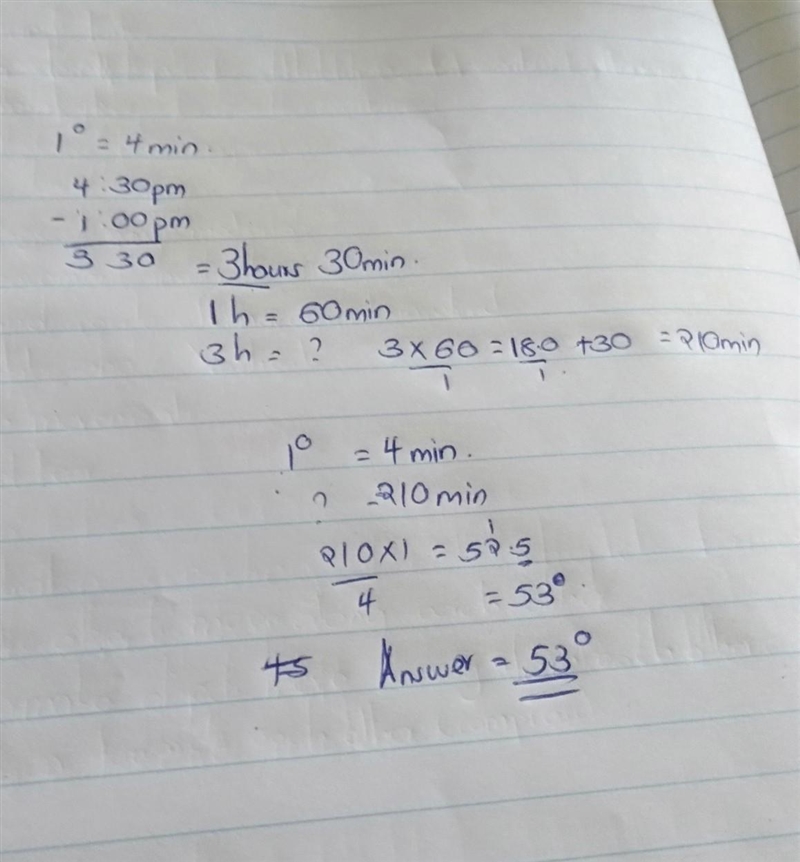 1° = 4min.
4:30pm
- 1:00pm
3 30 = 3hours 30min.
1h = 60min
3h = ? 3×60 = 180 +30 = 210min
1 1.
1° = 4min.
? - 210min
1
210×1 = 52.5
4 = 53°.
45 Answer = 53°